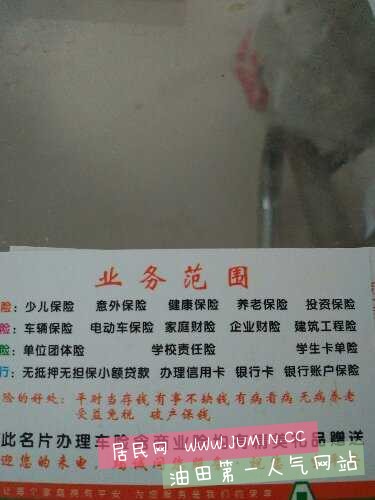 业务范围
险：少儿保险 意外保险 健康保险 养老保险 投资保险
险：车辆保险 电动车保险 家庭财险 企业财险 建筑工程险
险：单位团体险 学校责任险 学生卡单险
行：无抵押无担保小额贷款 办理信用卡 银行卡 银行账户保险
险的好处：平时当存钱 有事不缺钱 有病看病 无病养老
受益免税 破产保钱
此名片办理车险含商业险 品赠送
迎您的来电
居民网 www.JUMIN.CC
油田第一人气网站